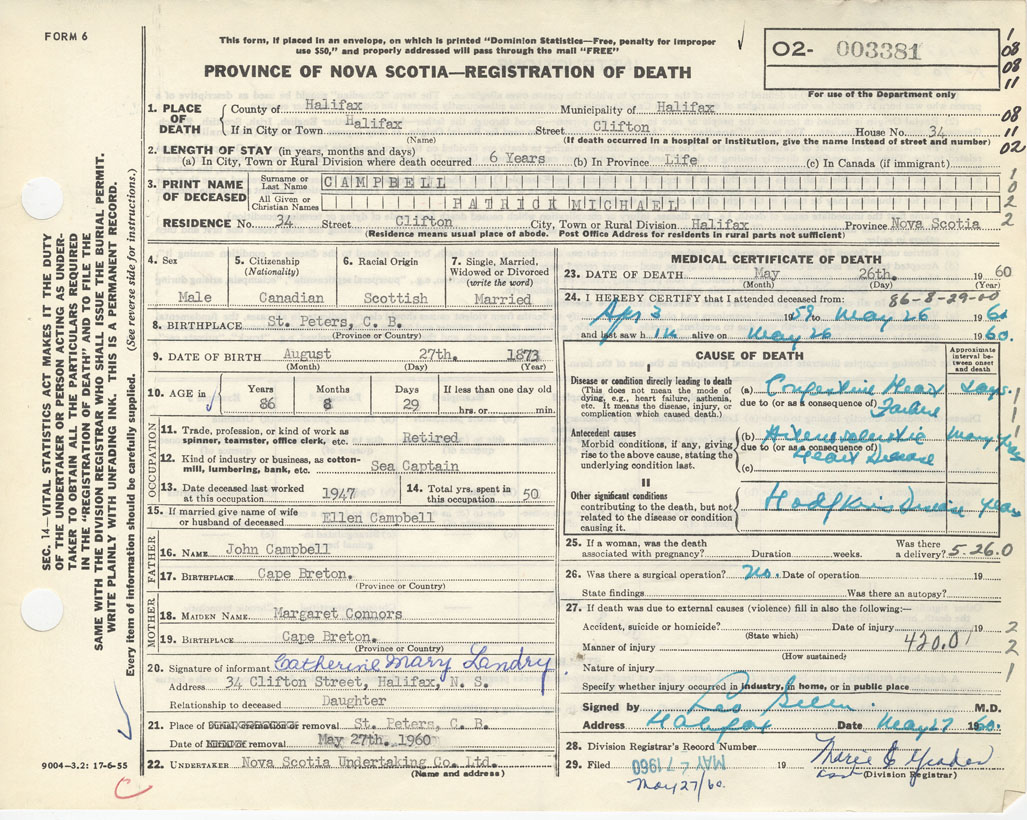 FORM 6
This form, if placed in an envelope, on which is printed "Dominion Statistics—Free, penalty for improper
use $50," and properly addressed will pass through the mail "FREE"
PROVINCE OF NOVA SCOTIA—REGISTRATION OF DEATH
O2- 003381
For use of the Department only
1
08
08
11
08
11
02
1
0
2
2
1. PLACE OF DEATH { County of Halifax Municipality of Halifax
If in City or Town Halifax Street Clifton House No. 34
(Name) (If death occurred in a hospital or institution, give the name instead of street and number)
2. LENGTH OF STAY (in years, months and days)
(a) In City, Town or Rural Division where death occurred 6 Years (b) In Province Life (c) In Canada (if immigrant)
3. PRINT NAME OF DECEASED { Surname or Last Name CAMPBELL
All Given or Christian Names PATRICK MICHAEL
RESIDENCE No. 34 Street Clifton City, Town or Rural Division Halifax Province Nova Scotia
(Residence means usual place of abode. Post Office Address for residents in rural parts not sufficient)
4. Sex
Male
5. Citizenship
(Nationality)
Canadian
6. Racial Origin
Scottish
7. Single, Married,
Widowed or Divorced
(write the word)
Married
8. BIRTHPLACE St. Peters, C. B.
(Province or Country)
9. DATE OF BIRTH August 27th. 1873
(Month) (Day) (Year)
10. AGE in { Years Months Days If less than one day old
86 8 29 hrs. or min.
OCCUPATION
11. Trade, profession, or kind of work as
spinner, teamster, office clerk, etc. Retired
12. Kind of industry or business, as cotton-
mill, lumbering, bank, etc. Sea Captain
13. Date deceased last worked
at this occupation 1947
14. Total yrs. spent in
this occupation 50
15. If married give name of wife
or husband of deceased Ellen Campbell
FATHER
16. NAME John Campbell
17. BIRTHPLACE Cape Breton.
(Province or Country)
MOTHER
18. MAIDEN NAME Margaret Connors
19. BIRTHPLACE Cape Breton.
(Province or Country)
20. Signature of informant Catherine Mary Landry
Address 34 Clifton Street, Halifax, N. S.
Relationship to deceased Daughter
21. Place of removal St. Peters, C. B.
Date of removal May 27th. 1960
22. UNDERTAKER Nova Scotia Undertaking Co. Ltd.
(Name and address)
MEDICAL CERTIFICATE OF DEATH
23. DATE OF DEATH May 26th. 1960
(Month) (Day) (Year)
24. I HEREBY CERTIFY that I attended deceased from: 86-8-29-00
Apr 3 1959 to May 26 1960
and last saw h im alive on May 26 1960.
CAUSE OF DEATH
Approximate interval between onset and death
I
Disease or condition directly leading to death
(This does not mean the mode of dying, e.g., heart failure, asthenia, etc. It means the disease, injury, or complication which caused death.)
(a) Congestive Heart days.
due to (or as a consequence of) Failure
Antecedent causes
Morbid conditions, if any, giving rise to the above cause, stating the underlying condition last.
(b) Arteriosclerotic many yrs
due to (or as a consequence of) Heart Disease
(c)
II
Other significant conditions
contributing to the death, but not related to the disease or condition causing it.
Hodgkins Disease years
1
1
1
25. If a woman, was the death
associated with pregnancy? Duration weeks. Was there
a delivery? 5.26.0
26. Was there a surgical operation? no. Date of operation 19
State findings Was there an autopsy?
27. If death was due to external causes (violence) fill in also the following:—
Accident, suicide or homicide? Date of injury 19
(State which)
Manner of injury 420.01
(How sustained)
Nature of injury
2
2
1
Specify whether injury occurred in industry, in home, or in public place
Signed by M.D.
Address Halifax Date May 27 1960.
28. Division Registrar's Record Number
29. Filed MAY 27 1960 19
May 27/60. (Division Registrar)
SEC. 14—VITAL STATISTICS ACT MAKES IT THE DUTY
OF THE UNDERTAKER OR PERSON ACTING AS UNDER-
TAKER TO OBTAIN ALL THE PARTICULARS REQUIRED
IN THE "REGISTRATION OF DEATH" AND TO FILE THE
SAME WITH THE DIVISION REGISTRAR WHO SHALL ISSUE THE BURIAL PERMIT.
WRITE PLAINLY WITH UNFADING INK. THIS IS A PERMANENT RECORD.
Every item of information should be carefully supplied. (See reverse side for instructions.)
9004-3.2: 17-6-55
C